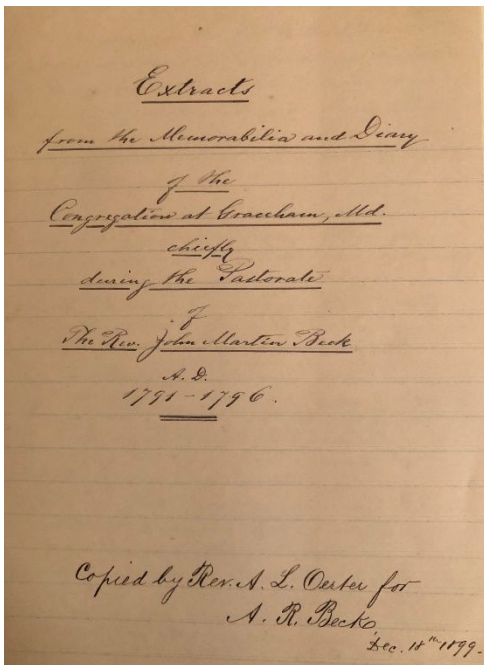 Extracts
from the Memorabilia and Diary
of the
Congregation at Graceham, Md.
chiefly
during the Pastorate
of
The Rev. John Martin Beck
A.D.
1791-1796.
Copied by Rev. A. L. Oerter for
A. R. Beck
Dec. 18th 1899.